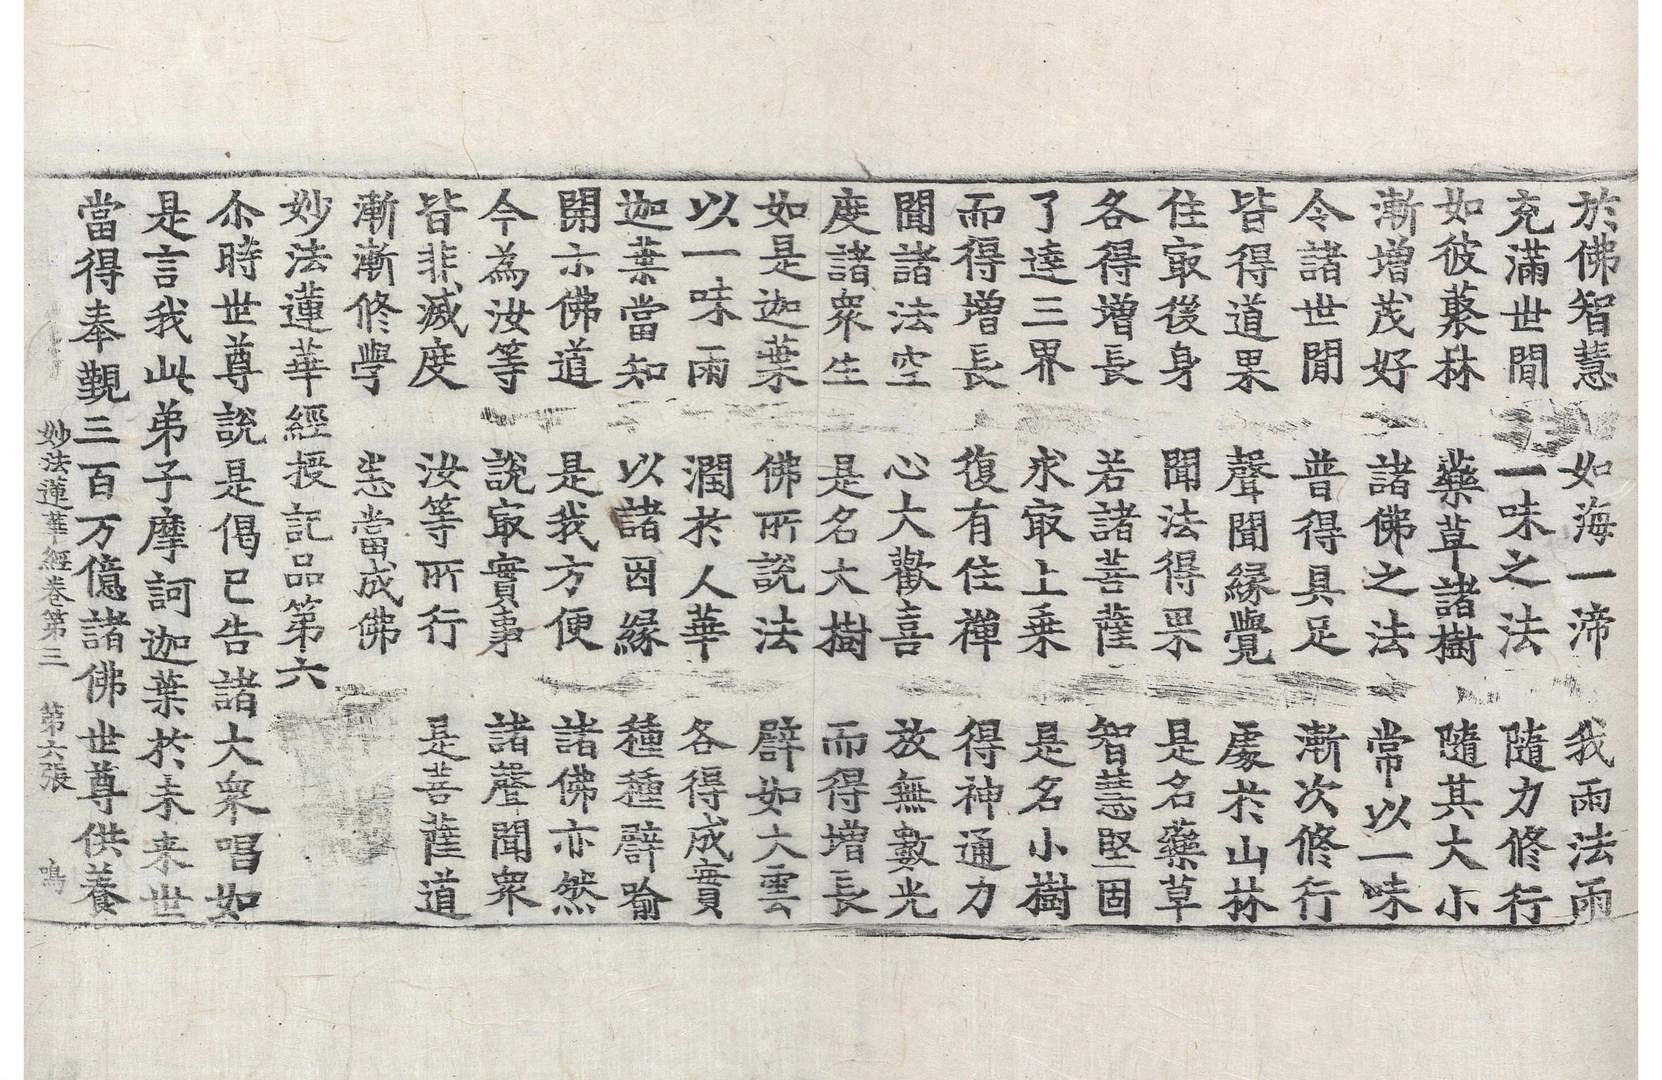 於佛智慧 如海一渧 我雨法雨
充滿世閒 一味之法 隨力修行
如彼藂林 藥草諸樹 隨其大小
漸增茂好 諸佛之法 常以一味
令諸世閒 普得具足 漸次修行
皆得道果 聲聞緣覺 處於山林
住㝡後身 聞法得果 是名藥草
各得增長 若諸菩薩 智慧堅固
了達三界 求㝡上乗 是名小樹
而得增長 復有住禪 得神通力
聞諸法空 心大歡喜 放無數光
度諸衆生 是名大樹 而得增長
如是迦葉 佛所說法 譬如大雲
以一味雨 潤於人華 各得成實
迦葉當知 以諸因緣 種種譬喻
開示佛道 是我方便 諸佛亦然
今為汝等 說㝡實事 諸聲聞衆
皆非滅度 汝等所行 是菩薩道
漸漸修學 悉當成佛
妙法蓮華經授記品第六
尒時世尊說是偈已告諸大衆唱如
是言我此弟子摩訶迦葉於未来世
當得奉覲三百万億諸佛世尊供養
妙法蓮華經卷第三 第六張 鳴